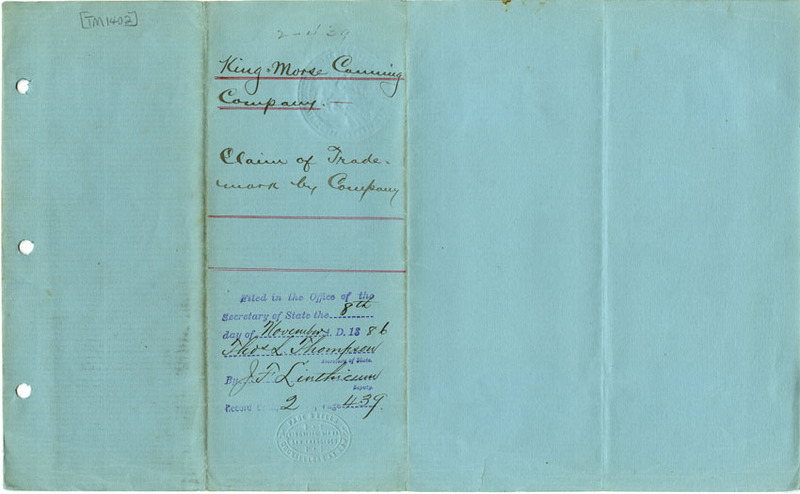 [TM1402]
King-Morse Canning
Company.
Claim of Trade-
mark by Company
Filed in the Office of the
Secretary of State the 8th
day of November A. D. 1886
Thos L. Thompson
Secretary of State.
By J. F. Linthicum
Deputy.
Record Book, 2 Page 439.